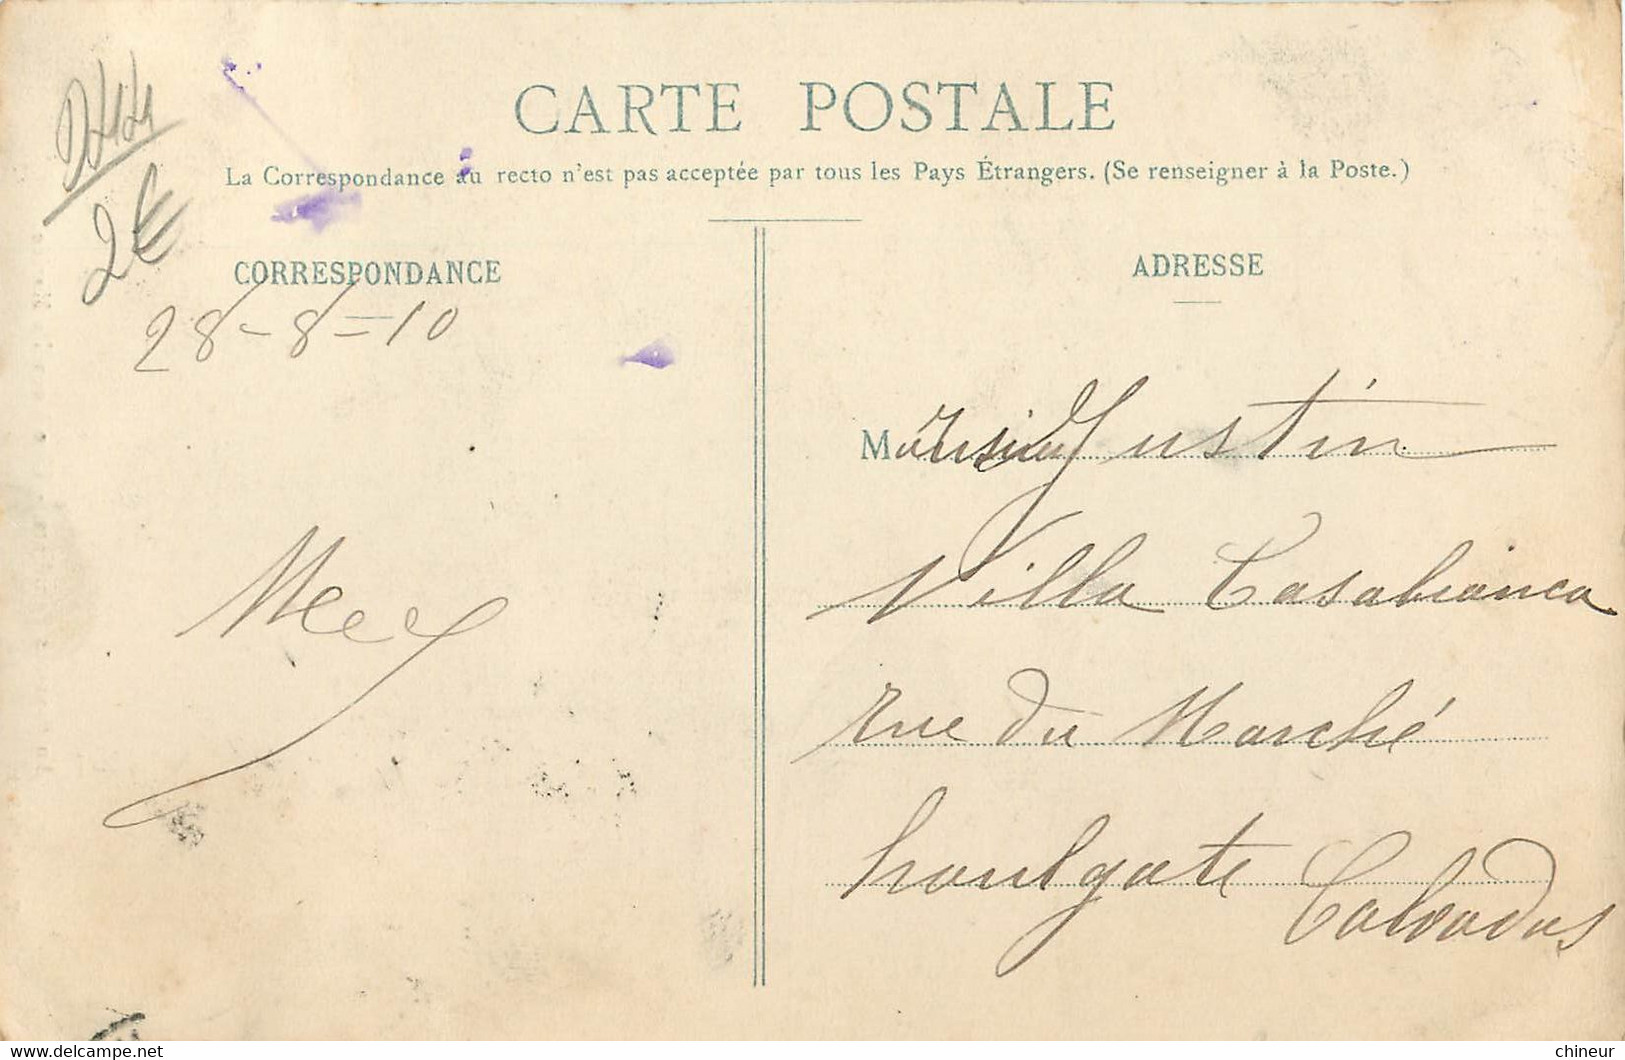 D44
2€
CARTE POSTALE
La Correspondance au recto n'est pas acceptée par tous les Pays Étrangers. (Se renseigner à la Poste.)
CORRESPONDANCE
ADRESSE
28-8=10
Monsieur Justin
Villa Casabianca
rue du Marché
houlgate Calvados
delcampe.net
chineur